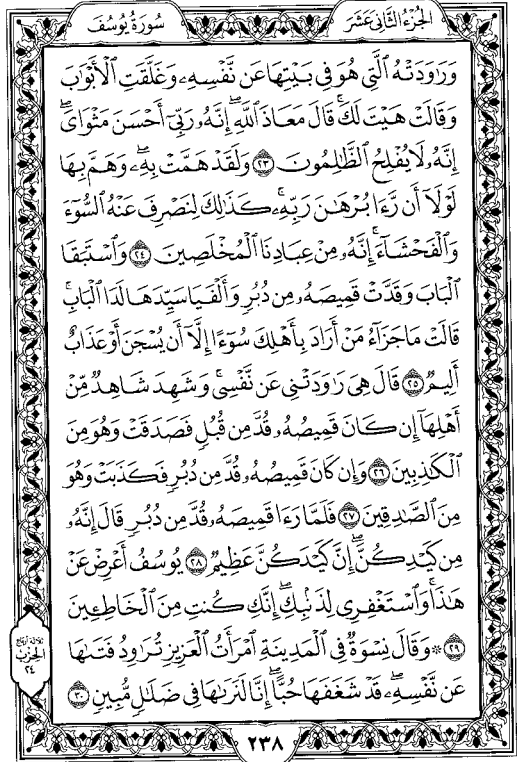 الجزء الثاني عشر
سورة يوسف
وَرَاوَدَتْهُ ٱلَّتِى هُوَ فِى بَيْتِهَا عَن نَّفْسِهِۦ وَغَلَّقَتِ ٱلْأَبْوَٰبَ
وَقَالَتْ هَيْتَ لَكَ ۚ قَالَ مَعَاذَ ٱللَّهِ ۖ إِنَّهُۥ رَبِّىٓ أَحْسَنَ مَثْوَاىَ ۖ
إِنَّهُۥ لَا يُفْلِحُ ٱلظَّٰلِمُونَ ٢٣ وَلَقَدْ هَمَّتْ بِهِۦ ۖ وَهَمَّ بِهَا
لَوْلَآ أَن رَّءَا بُرْهَٰنَ رَبِّهِۦ ۚ كَذَٰلِكَ لِنَصْرِفَ عَنْهُ ٱلسُّوٓءَ
وَٱلْفَحْشَآءَ ۚ إِنَّهُۥ مِنْ عِبَادِنَا ٱلْمُخْلَصِينَ ٢٤ وَٱسْتَبَقَا
ٱلْبَابَ وَقَدَّتْ قَمِيصَهُۥ مِن دُبُرٍ وَأَلْفَيَا سَيِّدَهَا لَدَا ٱلْبَابِ ۚ
قَالَتْ مَا جَزَآءُ مَنْ أَرَادَ بِأَهْلِكَ سُوٓءًا إِلَّآ أَن يُسْجَنَ أَوْ عَذَابٌ
أَلِيمٌ ٢٥ قَالَ هِىَ رَٰوَدَتْنِى عَن نَّفْسِى ۚ وَشَهِدَ شَاهِدٌ مِّنْ
أَهْلِهَآ إِن كَانَ قَمِيصُهُۥ قُدَّ مِن قُبُلٍ فَصَدَقَتْ وَهُوَ مِنَ
ٱلْكَٰذِبِينَ ٢٦ وَإِن كَانَ قَمِيصُهُۥ قُدَّ مِن دُبُرٍ فَكَذَبَتْ وَهُوَ
مِنَ ٱلصَّٰدِقِينَ ٢٧ فَلَمَّا رَءَا قَمِيصَهُۥ قُدَّ مِن دُبُرٍ قَالَ إِنَّهُۥ
مِن كَيْدِكُنَّ ۖ إِنَّ كَيْدَكُنَّ عَظِيمٌ ٢٨ يُوسُفُ أَعْرِضْ عَنْ
هَٰذَا ۚ وَٱسْتَغْفِرِى لِذَنۢبِكِ ۖ إِنَّكِ كُنتِ مِنَ ٱلْخَاطِـِٔينَ
٢٩ ۞ وَقَالَ نِسْوَةٌ فِى ٱلْمَدِينَةِ ٱمْرَأَتُ ٱلْعَزِيزِ تُرَٰوِدُ فَتَىٰهَا
عَن نَّفْسِهِۦ ۖ قَدْ شَغَفَهَا حُبًّا ۖ إِنَّا لَنَرَىٰهَا فِى ضَلَٰلٍ مُّبِينٍ ٣٠
ثلاثة أرباع
الحزب
٢٤
٢٣٨